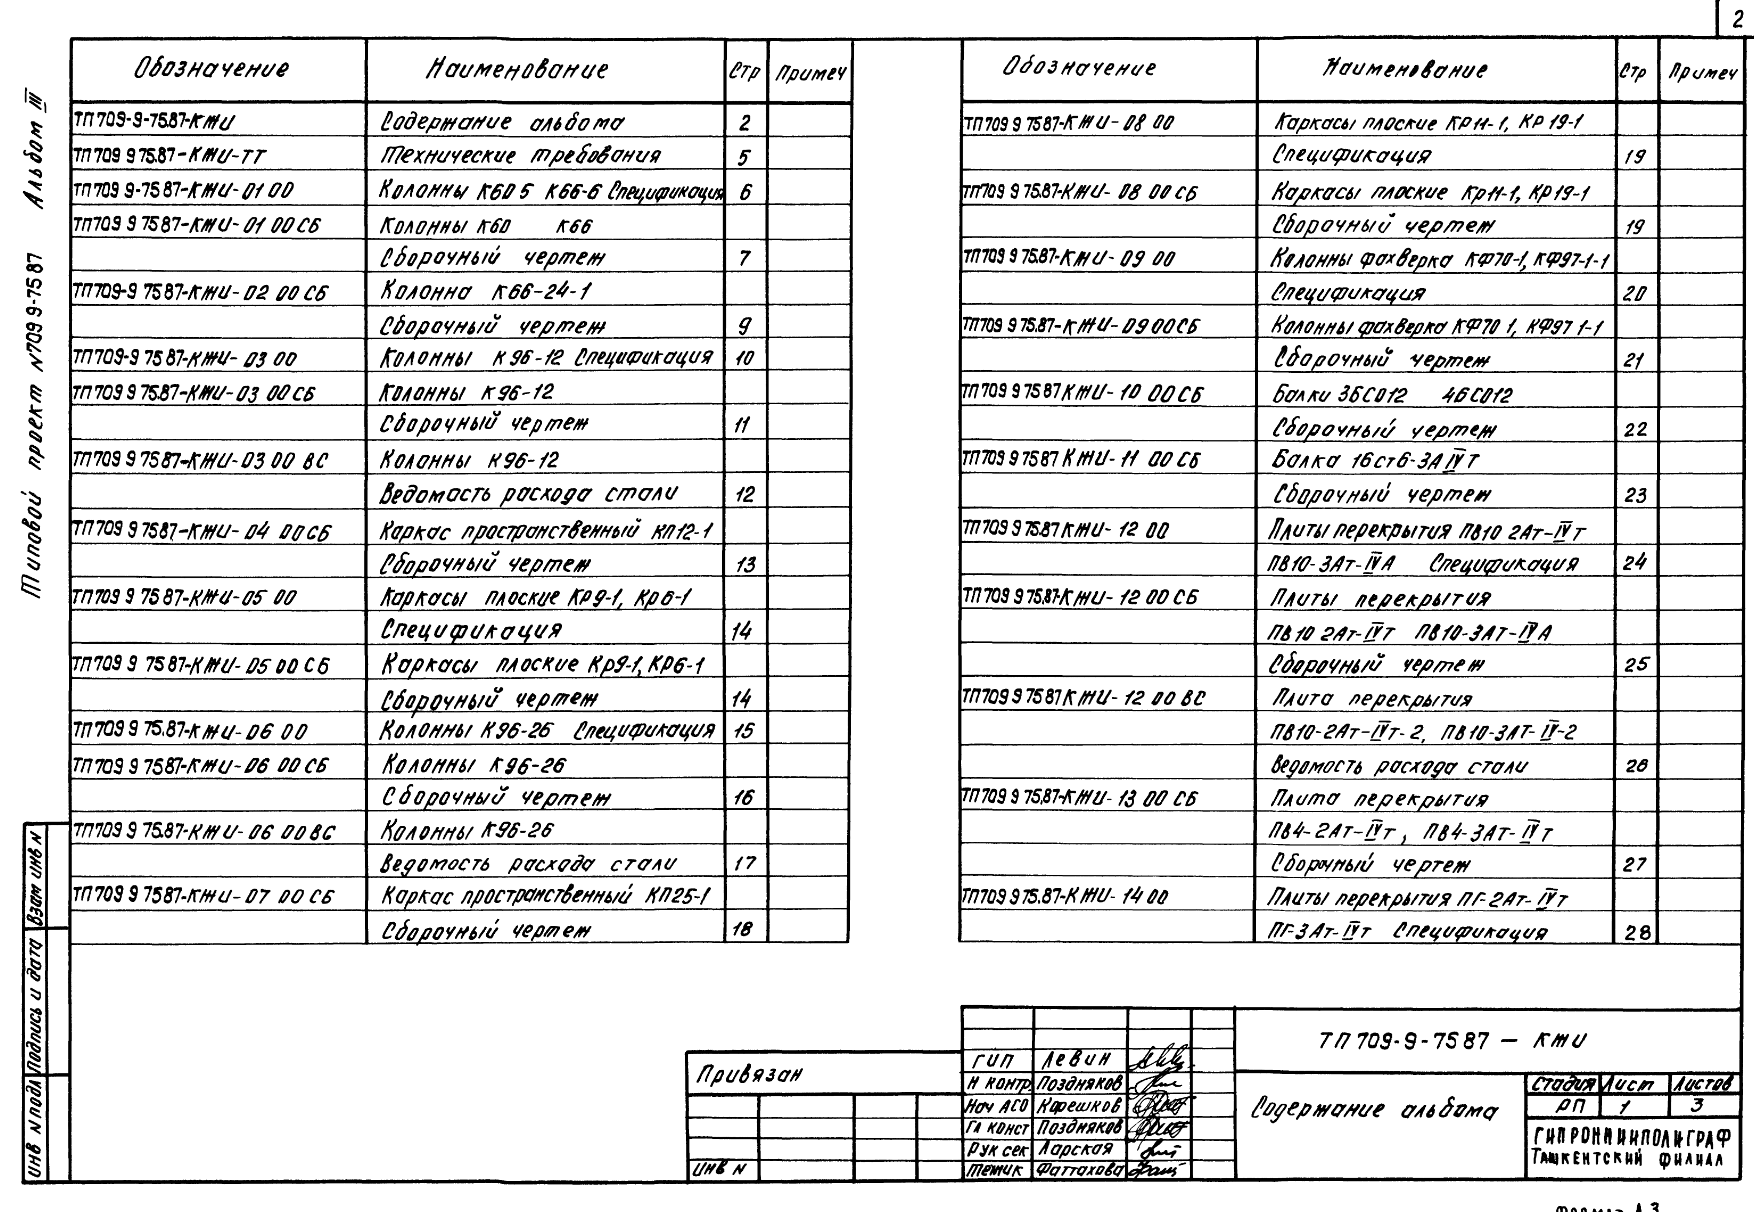 2
Типовой проект N709 9-7587 Альбом III
Обозначение Наименование Стр Примеч
ТП709-9-7587-КЖИ Содержание альбома 2
ТП709 9 75.87-КЖИ-ТТ Технические требования 5
ТП709 9-7587-КЖИ-01 00 Колонны К60 5 К66-6 Спецификация 6
ТП709 9 7587-КЖИ-01 00 СБ Колонны К60 К66
Сборочный чертеж 7
ТП709-9 7587-КЖИ-02 00 СБ Колонна К66-24-1
Сборочный чертеж 9
ТП709-9 7587-КЖИ-03 00 Колонны К96-12 Спецификация 10
ТП709 9 75.87-КЖИ-03 00 СБ Колонны К96-12
Сборочный чертеж 11
ТП709 9 7587-КЖИ-03 00 ВС Колонны К96-12
Ведомость расхода стали 12
ТП709 9 7587-КЖИ-04 00 СБ Каркас пространственный КП12-1
Сборочный чертеж 13
ТП709 9 7587-КЖИ-05 00 Каркасы плоские Кр9-1, Кр6-1
Спецификация 14
ТП709 9 7587-КЖИ-05 00 СБ Каркасы плоские Кр9-1, КР6-1
Сборочный чертеж 14
ТП709 9 75.87-КЖИ-06 00 Колонны К96-26 Спецификация 15
ТП709 9 7587-КЖИ-06 00 СБ Колонны К96-26
Сборочный чертеж 16
ТП709 9 75.87-КЖИ-06 00 ВС Колонны К96-26
Ведомость расхода стали 17
ТП709 9 7587-КЖИ-07 00 СБ Каркас пространственный КП25-1
Сборочный чертеж 18
Обозначение Наименование Стр Примеч
ТП709 9 7587-КЖИ-08 00 Каркасы плоские КР11-1, КР19-1
Спецификация 19
ТП709 9 75.87-КЖИ-08 00 СБ Каркасы плоские Кр11-1, КР19-1
Сборочный чертеж 19
ТП709 9 75.87-КЖИ-09 00 Колонны фахверка КФ70-1, КФ97-1-1
Спецификация 20
ТП709 9 75.87-КЖИ-09 00СБ Колонны фахверка КФ70 1, КФ97 1-1
Сборочный чертеж 21
ТП709 9 7587 КЖИ-10 00 СБ Балки 3БС012 4БС012
Сборочный чертеж 22
ТП709 9 7587 КЖИ-11 00 СБ Балка 1бст6-3АIVТ
Сборочный чертеж 23
ТП709 9 7587 КЖИ-12 00 Плиты перекрытия ПВ10 2Ат-IVт
ПВ10-3Ат-IVА Спецификация 24
ТП709 9 75.87-КЖИ-12 00 СБ Плиты перекрытия
ПВ10 2Ат-IVт ПВ10-3Ат-IVА
Сборочный чертеж 25
ТП709 9 7587 КЖИ-12 00 ВС Плита перекрытия
ПВ10-2Ат-IVт-2, ПВ10-3АТ-IV-2
Ведомость расхода стали 26
ТП709 9 75.87-КЖИ-13 00 СБ Плита перекрытия
ПВ4-2Ат-IVт, ПВ4-3Ат-IVт
Сборочный чертеж 27
ТП709 9 75.87-КЖИ-14 00 Плиты перекрытия ПГ-2Ат-IVт
ПГ-3Ат-IVт Спецификация 28
Инв N подл Подпись и дата Взам инв N
Привязан
Инв N
ГИП Левин
Н контр Поздняков
Нач АСО Корешков
Гл конст Поздняков
Рук сек Ларская
Техник Фаттахова
ТП 709-9-7587 - КЖИ
Содержание альбома
Стадия Лист Листов
РП 1 3
ГИПРОНИИПОЛИГРАФ
Ташкентский филиал
Формат А3